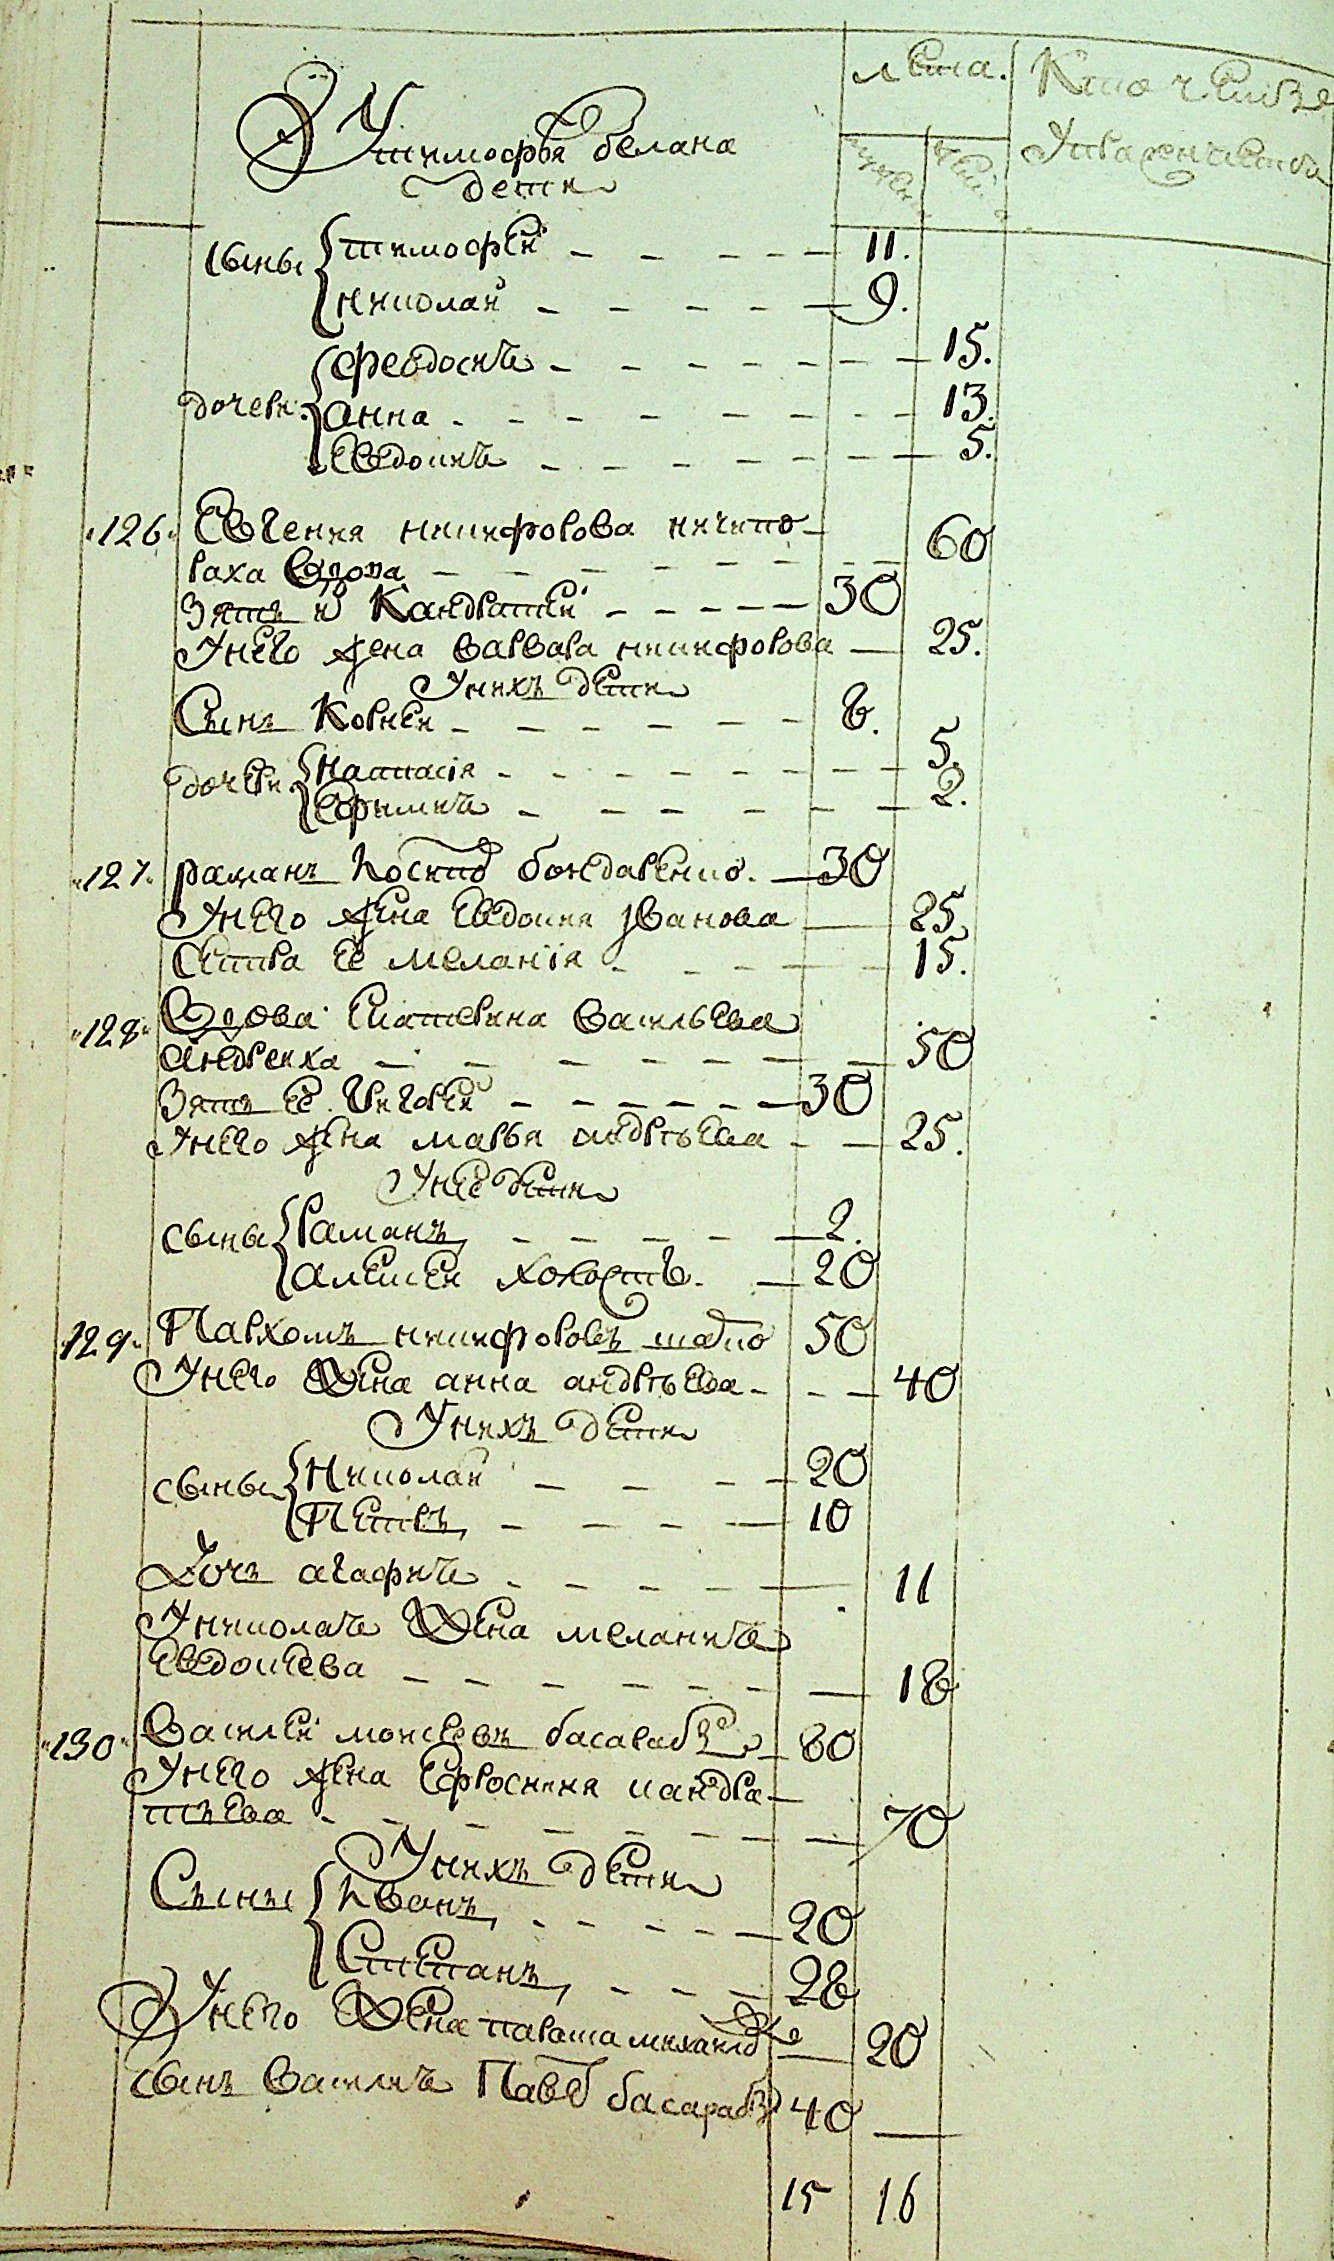 лета. Кто ч
мужес. жен.
У тимофѣя белана
дети
сыны тимофей 11.
николай 9.
феодосиѣ 15.
дочери анна 13.
Евдокиѣ 5.
126. Евгения никифорова ничипо-
раха вдова 60
Зять ей Кандратий 30
У него жена варвара никифорова 25.
У нихъ дети
Сынъ Корней 8.
дочери Настасія 5.
Ефимиѣ 2.
127. раманъ Носко бондаренко. 30
У него жена Евдокия иванова 25
Сестра ее меланіія 15.
128. Вдова Екатерина васильева
андреиха 50
Зять ее Григорей 30
У него жена марья андрѣева 25.
У нее дети
сыны Раманъ 2.
алексей холостъ. 20
129. Пархомъ никифоровъ шапо 50
У него жена анна андрѣева 40
У нихъ дети
сыны Николай 20
Петръ 10
Дочь агафиѣ 11
У николаѣ жена меланиѣ
Евдокиева 18
130 Василей моисеевъ басараб 80
У него жена Ефросиния кандра-
тьева 70
У нихъ дети
Сыны Иванъ 20
Степанъ 28
У него жена параша михайло 20
сынъ василиѣ Павло басараб 40
15 16